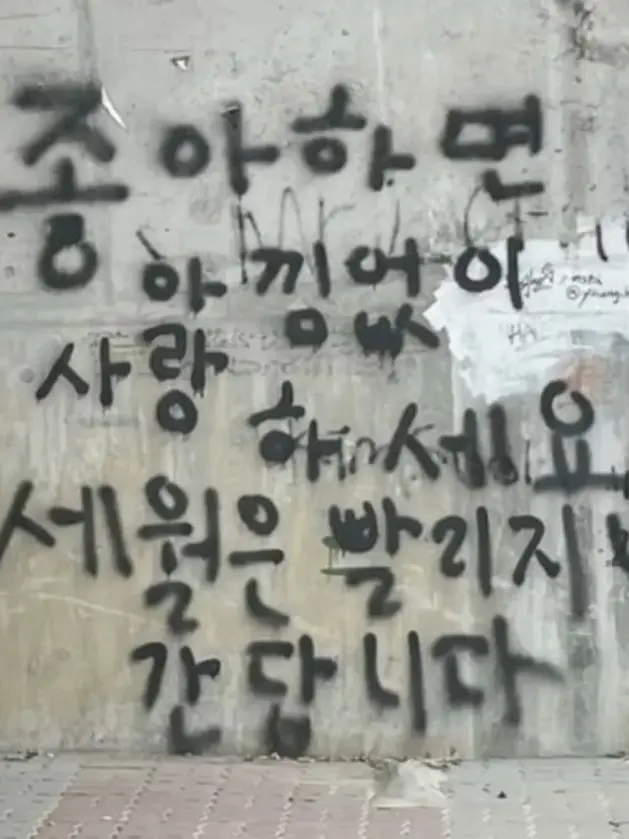 종아하면
아낌없이
사랑
하세요
세월은 빨리지
간답니다